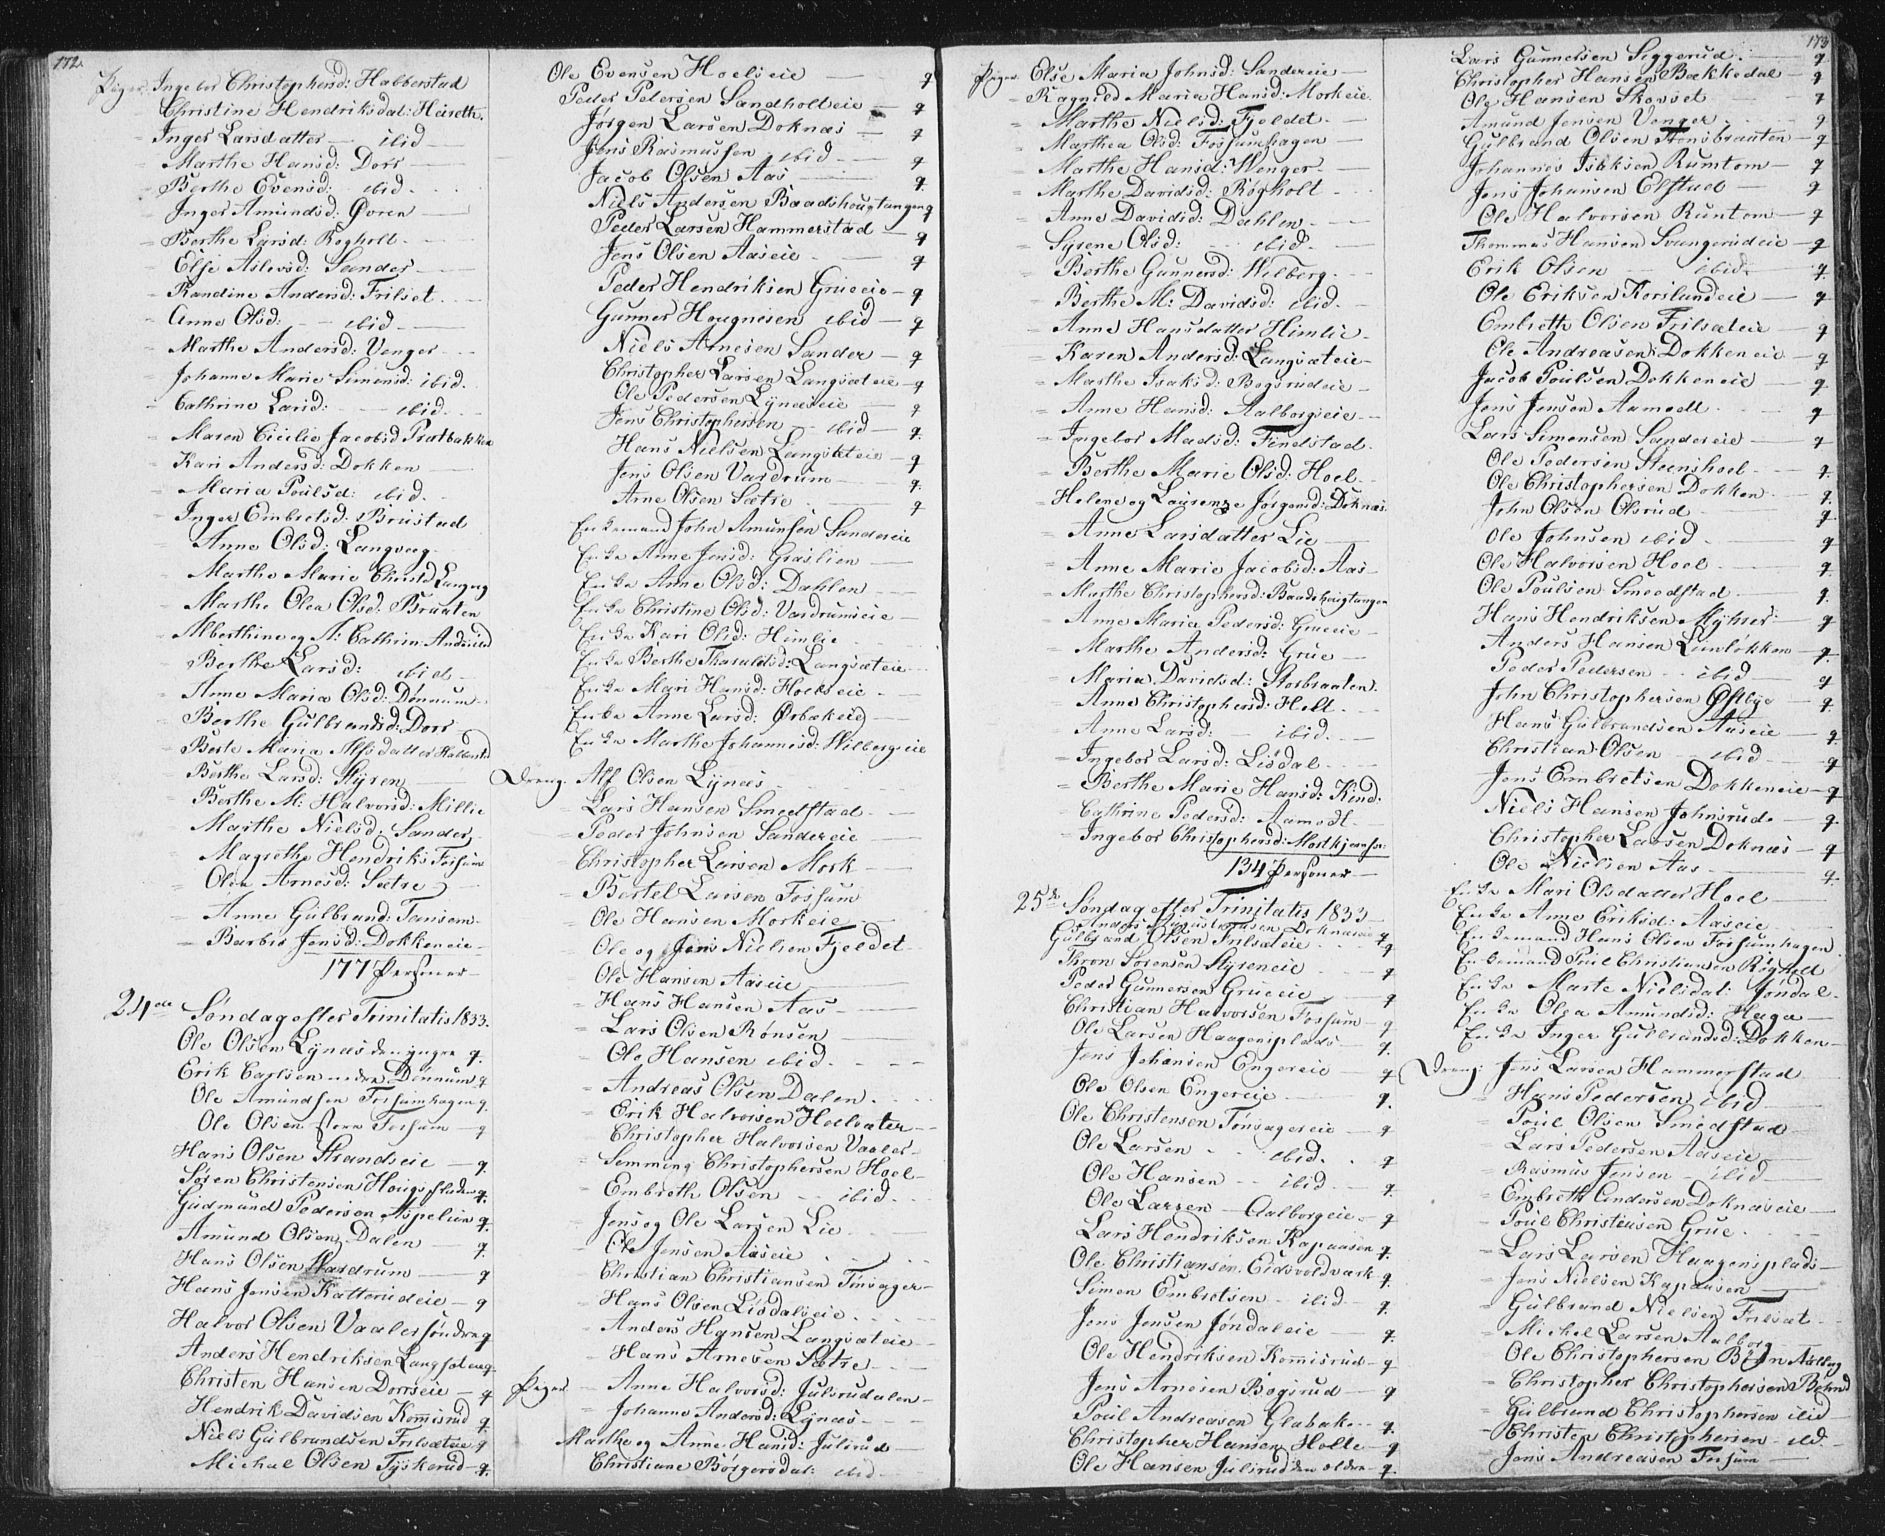 172.
Piger. Ingebor Christophersd: Habberstad
Christine Hendriksdat: Heireth.
Inger Larsdatter - ibid -
Marthe Hansd: Dorr -
Berthe Evensd: ibid.
Inger Amundsd: Øvren
Berthe Larsd: Rogholt.
Else Aslevsd: Sander -
Randine Andersd: Frilset.
Anne Olsd: - ibid -
Marthe Andersd: Venger
Johanne Marie Simensd: ibid.
Cathrine Larsd: - ibid.
Maren Cicilie Jacobsd Pratbakken
Kari Andersd: Dokken
Maria Poulsd: ibid.
Inger Embretsd: Brustad
Anne Olsd: Langvæg.
Marthe Marie Christd Langvg
Marthe Olea Olsd: Bruaten
Alberthine og A: Cathrin:
Berthe Larsd: ibid -
Anne Maria Olsd: Dønnum
Berthe Gulbrandsd: Dorr
Berte Maria Alfsdatter Habberstd
Berthe Larsd: Styren
Berthe M: Halvorsd: Millie
Marthe Nielsd: Sander
Magrethe Hendriks Fossum
Olea Arnesd: Sætre
Anne Gulbrand: Tansem
Barbro Jensd: Dokkeneie
177 Personer
24de Søndag efter Trinitatis 1833.
Ole Olsen Lynæs den yngre q.
Erik Carlsen nedre Dønnum q
Ole Amundsen Fossumhagen q.
Ole Olsen store Fossum - q
Hans Olsen Strandseie - q.
Søren Christensen q.
Gudmund Pedersen Aspelien q.
Amund Olsen Dalen - q.
Hans Olsen Vardrum - q
Hans Jensen Katterudeie - q
Halvor Olsen Vaaler søndre q
Anders Hendriksen Langset
Christen Hansen Dorrseie - q
Hendrik Davidsen Komisrud q
Niels Gulbrandsen Frilsæteie q
Michael Olsen Tyskerud - q.
Ole Evensen Hoelseie - q
Peder Petersen Sandholteie - q
Jørgen Larsen Doknæs - q
Jens Rasmussen ibid - q
Jacob Olsen Aas - q.
Niels Andersen Baadshougtangen q
Peder Larsen Hammerstad - q
Jens Olsen Aaseie - q
Peder Hendriksen Grueeie - q
Gunner Hougnesen ibid - q
Niels Arnesen Sander - q
Christopher Larsen Langsæteie - q
Ole Pedersen Lynæseie - q
Jens Christophersen - ibid - q.
Hans Nielsen Langsæteie - q
Jens Olsen Vardrum - q.
Arne Olsen Sætre - q
Enkemand John Amunsen Sandereie
Enke Anne Jensd: Graslien -
Enke Anne Olsd: Dahlen -
Enke Christine Olsd: Vardrumseie -
Enke Kari Olsd: Himlie -
Enke Berthe Tharaldsd: Langsæteie
Enke Mari Hansd: Hoelseie -
Enke Anne Larsd: Ørbækeie -
Enke Marthe Johannesd: Wilbergeie
Dreng. Alf Olsen Lynæs -
Lars Hansen Smedstad -
Peder Johnsen Sandereie -
Christopher Larsen Mork -
Bertel Larsen Fossum
Ole Hansen Morkeie -
Ole og Jens Nielsen Fjeldet -
Ole Hansen Aaseie -
Hans Hansen Aas -
Lars Olsen Rønsen -
Ole Hansen ibid. -
Andreas Olsen Dalen.
Erik Halvorsen Hoelsæter -
Christopher Halvorsen Vaaler -
Semming Christophersen Hoel -
Embreth Olsen - ibid. -
Jens og Ole Larsen Lie
Ole Jensen Aaseie
Christian Christiansen Finsager -
Hans Olsen Lisdalseie
Anders Hansen Langsæteie -
Hans Arnesen Sætre
Piger - Anne Halvorsd: Julsrudalen -
Johanne Andersd: Lynæs -
Marthe og Anne Hansd: Julsrud
Christiane Børgersdat: ibid -
Piger Else Maria Johnsd: Sandereie -
Ragnild Maria Hansd: Morkeie.
Marthe Nielsd: Fjeldet -
Marthea Olsd: Fossumhagen -
Marthe Hansd: Wenger -
Marthe Davidsd: Røgholt -
Anne Davidsd: Dahlen -
Syrene Olsd: ibid. -
Berthe Gunnersd: Wilberg -
Berthe M: Davidsd: ibid. -
Anne Hansdatter Himlie.
Karen Andersd: Langsæteie -
Marthe Isaksd: Bogsrudeie -
Anne Hansd: Aalborgseie -
Ingebor Madsd: Findstad.
Berthe Marie Olsd: Hoel -
Helene og Laurenze Jørgensd: Doknæs.
Anne Larsdatter Lie -
Anne Marie Jacobsd: Aas -
Marthe Christophersd: Baadshougtangen
Anne Maria Pedersd: Grueeie -
Marthe Andersd: Grue -
Maria Davidsd: Storbraaten.
Anne Christophersd: Holt.
Anne Larsd: - ibid. -
Ingebor Larsd: Lisdal -
Berthe Marie Hansd: Rind.
Cathrine Pedersd: Aamodt -
Ingebor Christophersd:
134 Personer -
25de Søndag efter Trinitatis 1833 -
Anders Doknæseie q
Gulbrand Olsen Frilsæteie q
Thron Sørensen Styreneie q
Peder Gunnersen Grueeie q
Christian Halvorsen Fossum - q
Ole Larsen Haagensplads - q.
Jens Johansen Engereie - q
Ole Olsen Engereie - q.
Ole Christensen Finsagereie - q
Ole Larsen - ibid. - q
Ole Hansen - ibid - q.
Ole Larsen - Aalborgeie - q
Lars Hendriksen Kapaasen q.
Ole Christiansen Eidsvoldværk q
Simen Embretsen - ibid - q.
Jens Jensen Jøndaleie - q.
Ole Hendriksen Komisrud - q
Jens Arnesen Bogsrud - q
Poul Andreasen Glabak - q.
Christopher Hansen Holte - q
Ole Hansen Julsrud den eldre - q.
173
Lars Gunnersen Siggerud - q
Christopher Hansen Bækkedal - q
Ole Hansen Skovset - q
Amund Jensen Venger - q
Gulbrand Olsen Hønsbraaten - q
Johannes Isaksen Rumtom - q
Jens Johansen Elstad - q
Ole Halvorsen Runtom - q
Thommas Hansen Svangerudeie - q
Erik Olsen - ibid - q.
Ole Eriksen Korslundeie - q
Embreth Olsen Frilsæteie - q
Ole Andreasen Dokkeneie - q
Jacob Poulsen Dokkeneie - q.
Jens Jensen Aamodt - q
Lars Simensen Sandereie - q
Ole Pedersen Steenshoel - q.
Ole Christophersen Dokken - q.
John Olsen Olsrud - q.
Ole Johnsen ibid - q
Ole Halvorsen Hoel - q
Ole Poulsen Smedstad - q.
Hans Hendriksen Myhrer - q
Anders Hansen Lunløkken - q.
Peder Pedersen - ibid - q
John Christophersen Østbye - q.
Hans Gulbrandsen Aaseie - q.
Christian Olsen - ibid - q
Jens Embretsen Dokkeneie - q
Niels Hansen Johnsrud - q.
Christopher Larsen Doknæs - q
Ole Nielsen Aas - q.
Enke Mari Olsdatter Hoel -
Enke Anne Eriksd: Aaseie -
Enkemand Hans Olsen Fossumhagen
Enkemand Poul Christiansen Røgholt
Enke Marte Nielsdat: Jøndal -
Enke Olea Amundsd: Haga -
Enke Inger Gulbrandsd: Dokken -
Dreng: Jens Larsen Hammerstad
Hans Pedersen ibid -
Poul Olsen Smedstad -
Lars Pedersen Aaseie -
Rasmus Jensen - ibid -
Embreth Andersen Doknæseie -
Poul Christensen Grue -
Lars Larsen Haagensplads -
Jens Nielsen Kapaasen -
Gulbrand Nielsen Frilset -
Michel Larsen Aalborg
Ole Christophersen
Christopher Christophersen
Gulbrand Christophersen ibid -
Christen Christophersen - ibd -
Jens Andreasen Fossum -